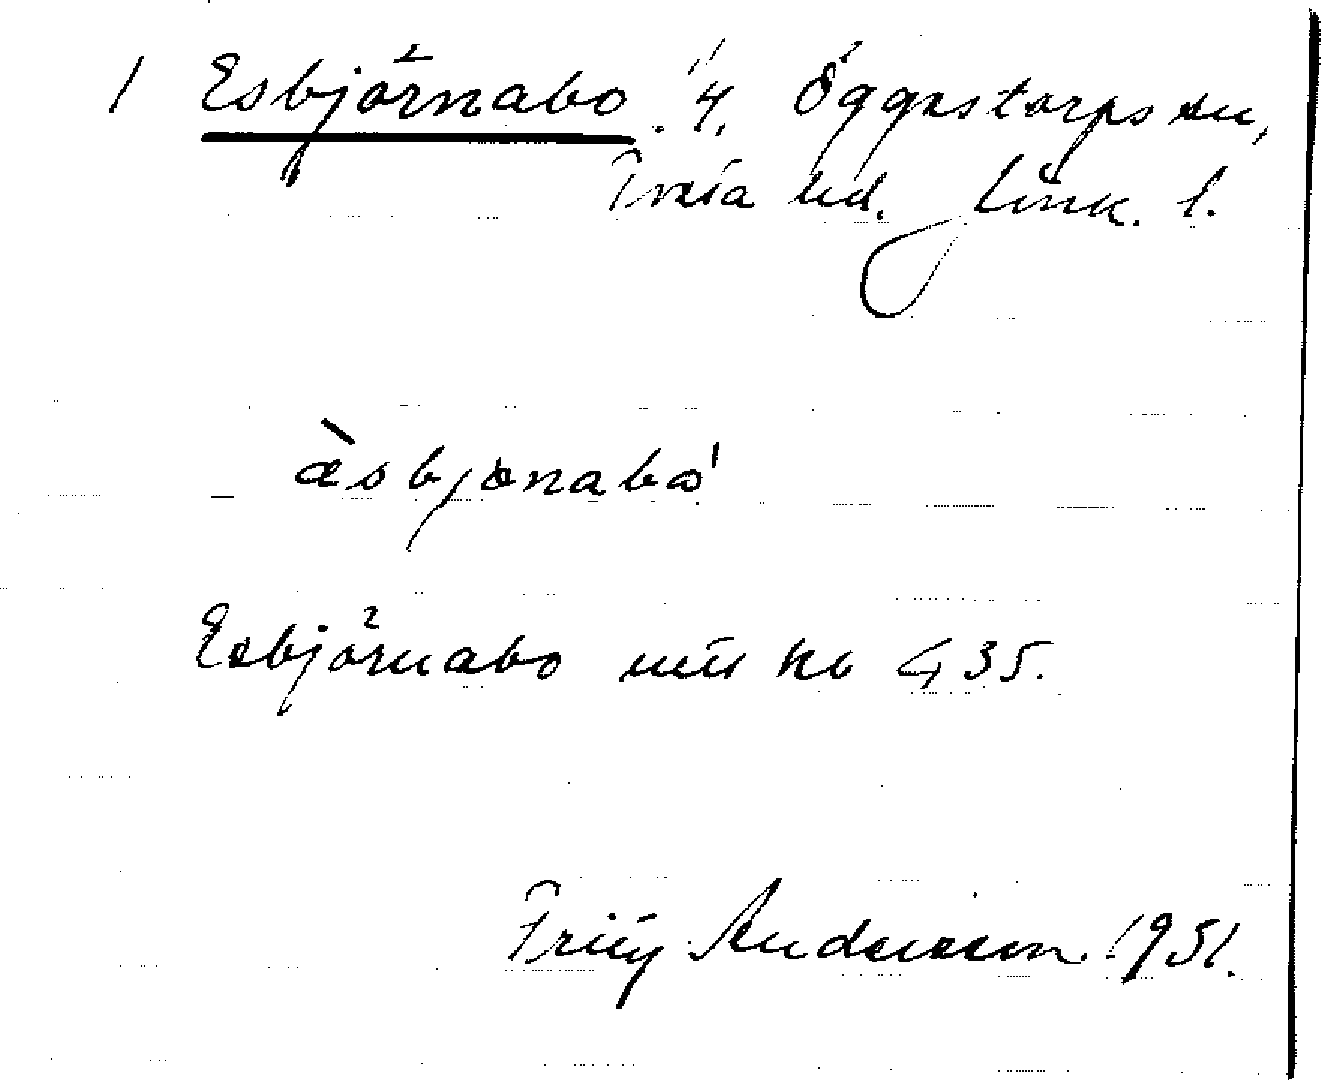 1 Esbjörnabo. "4. Öggestorps sn,
Tveta hd. Jönk. l.
æ̀sbjonabo'
Esbjörnabo
435.
Andersson 1951.